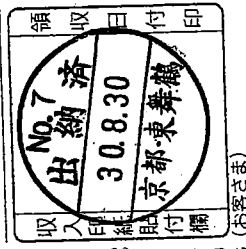 領収日付印
No. 7
出納済
30.8.30
京都・東舞鶴
収入印紙貼付欄
(お客さま)